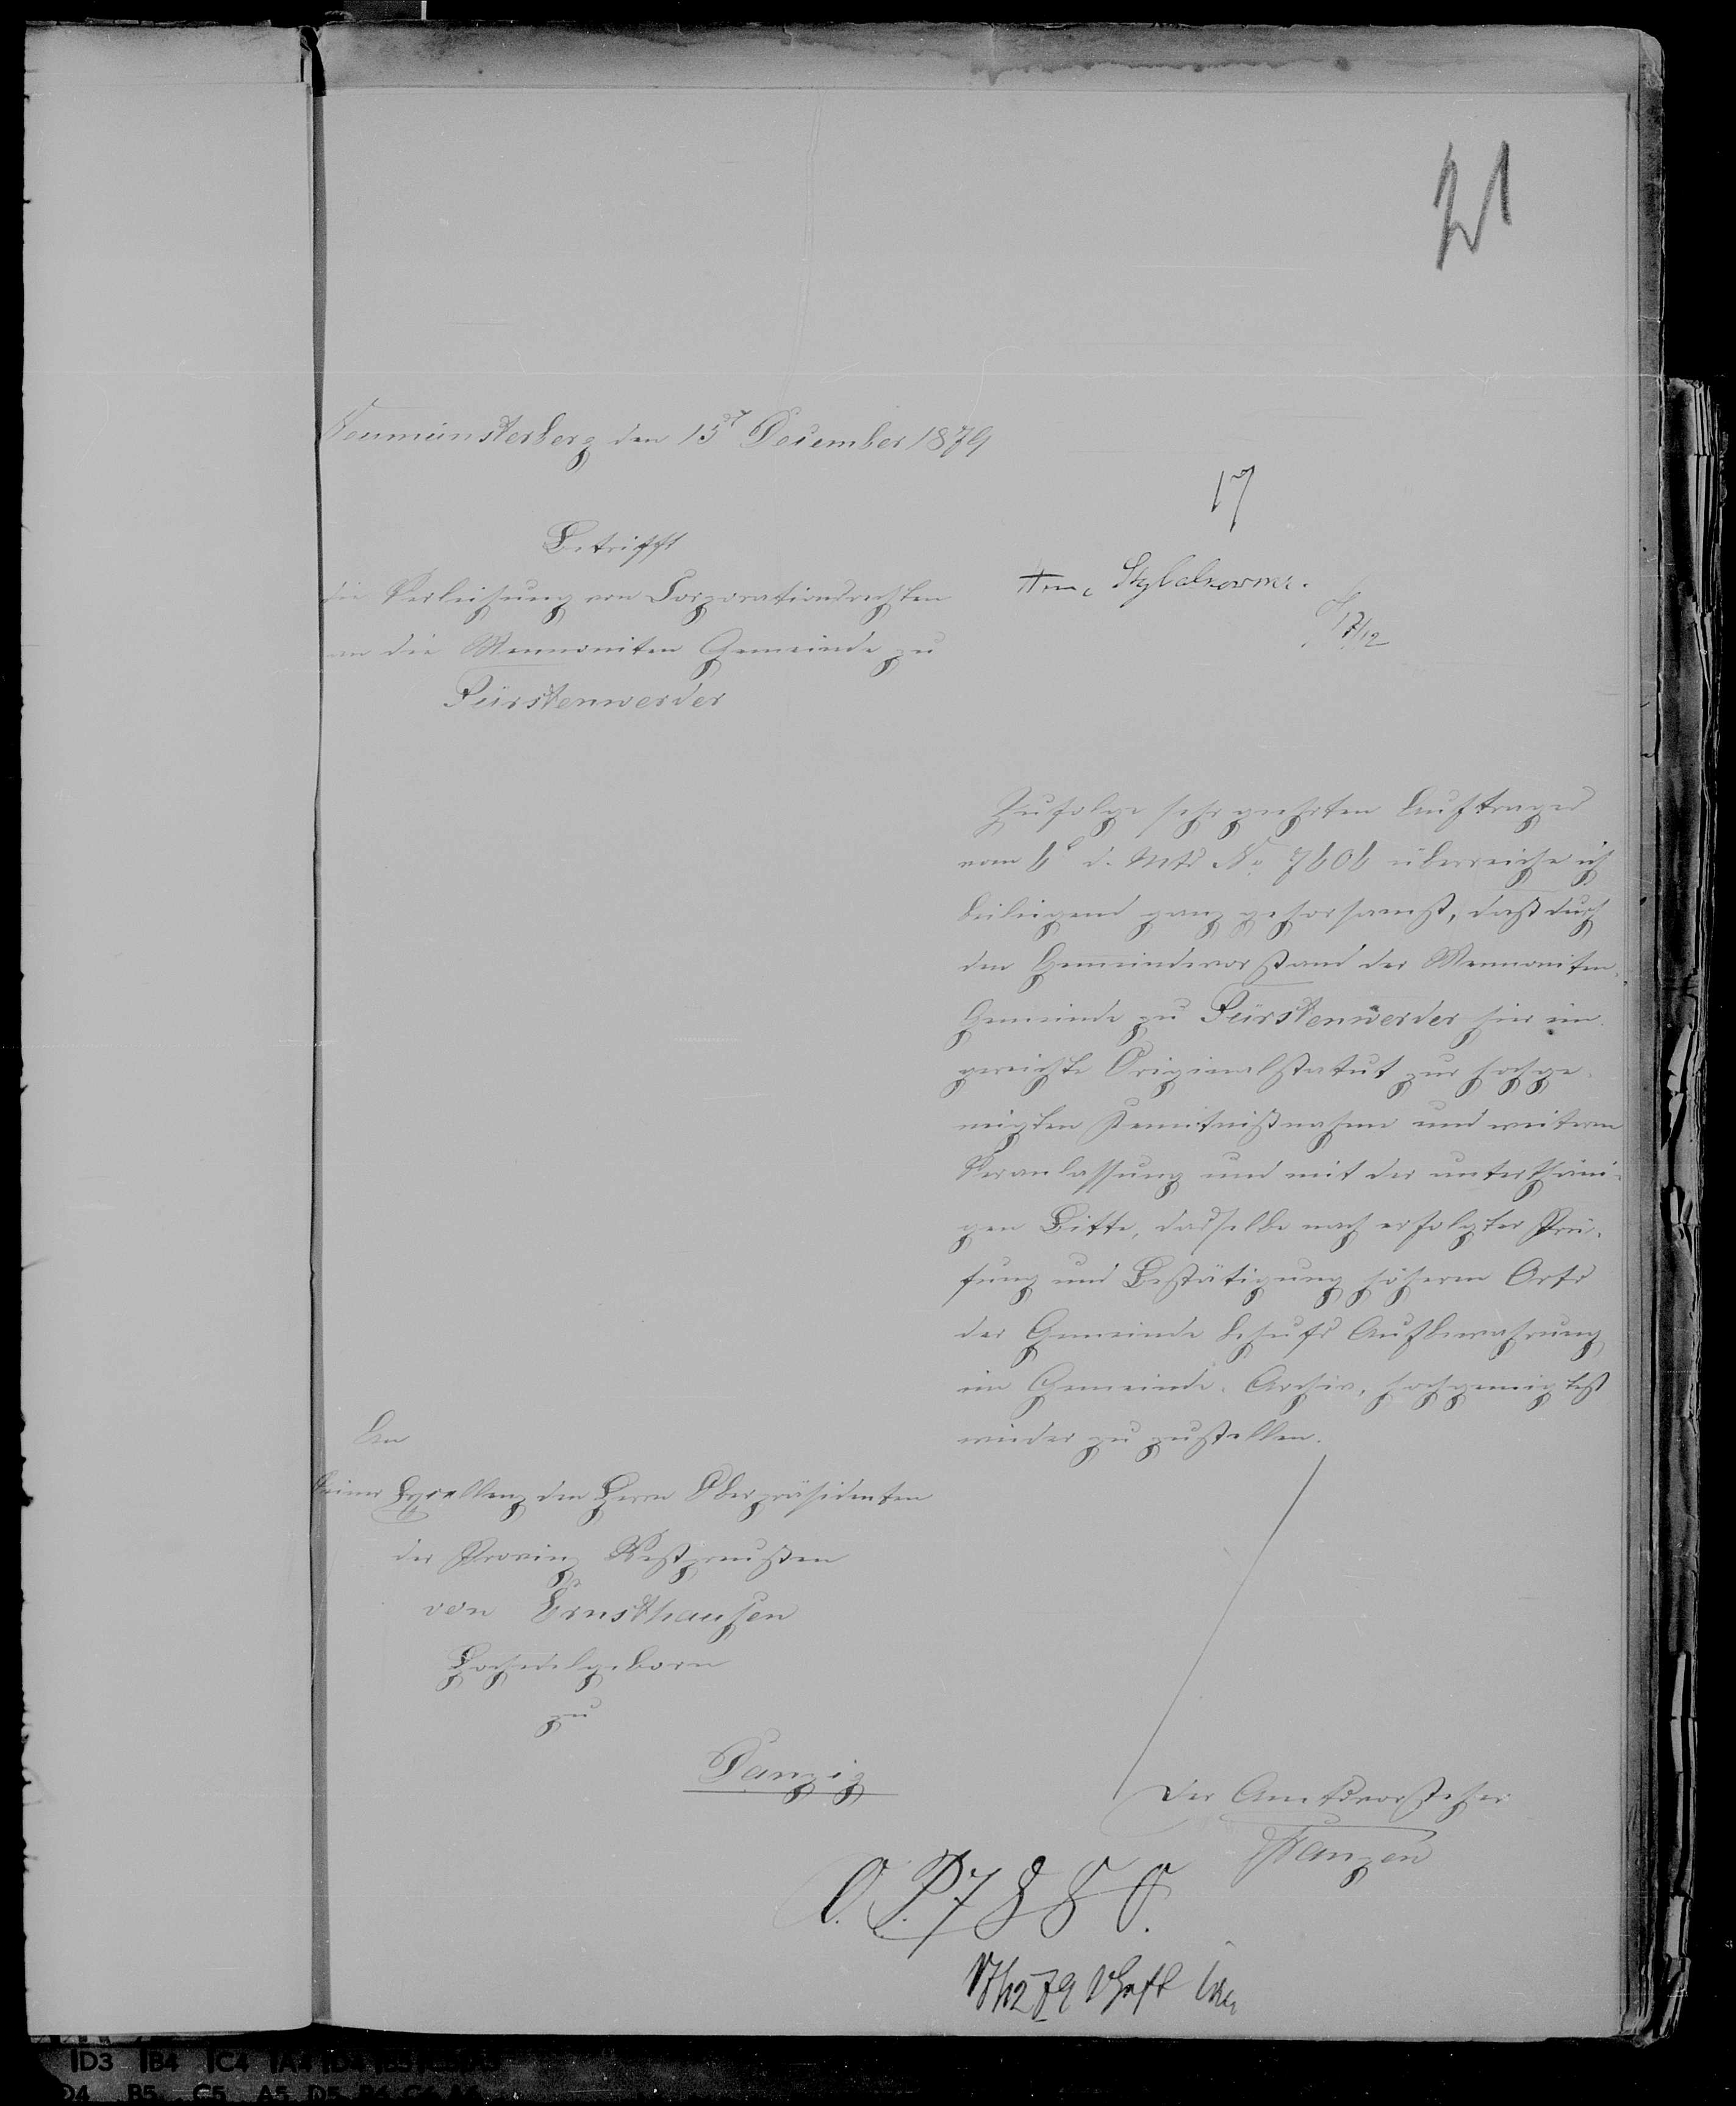 21
Neumünsterberg den 15t December 1879
17
Betrifft
die Verleihung von Corporationsrechten
an die Mennoniten Gemeinde zu
Fürstenwerder
17/12
Zufolge sehr geehrten Auftrages
vom 6 d. Mts No 7606 überreiche ich
beiliegend ganz gehorsamst, daß durch
den Gemeindevorstand der Mennoniten-
Gemeinde zu Fürstenwerder hier ein-
gereichte Originalstatut zur hochge-
neigten Kenntnißnahme und weiteren
Veranlassung und mit der unterthäni-
gen Bitte, dasselbe nach erfolgter Prü-
fung und Bestätigung höheren Orts
der Gemeinde behufs Aufbewahrung
im Gemeinde-Archiv, hochgeneigtest
wieder zu zustellen.
An
Seiner Excellenz den Herrn Oberpräsidenten
der Provinz Westpreußen
von Ernsthausen
Hochedelgeboren
zu
Danzig
Der Amtsvorsteher
O. P. 7880.
17/12 79 1 Heft
D3 B4 C4 A4 D4
D4 B5 C5 A5 D5 B6 C6 A6